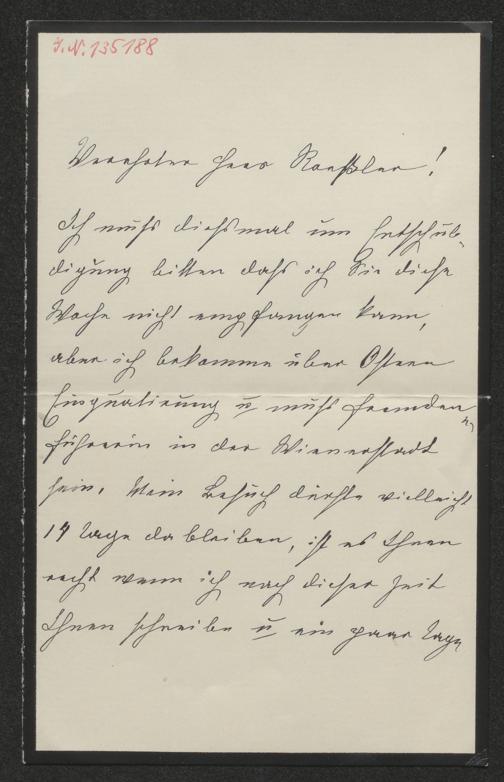 I.N. 135188
Verehrter Herr Roeßler!
Ich muſs dieſsmal um Entschul-
digung bitten daſs ich Sie diese
Woche nicht empfangen kann,
aber ich bekomme über Ostern
Einquatirung u muſs Fremden-
führerin in der Wienerstadt
sein. Mein Besuch dürfte vielleicht
14 Tage da bleiben, ist es Ihnen
recht wenn ich nach dieser Zeit
Ihnen schreibe u ein paar Tage